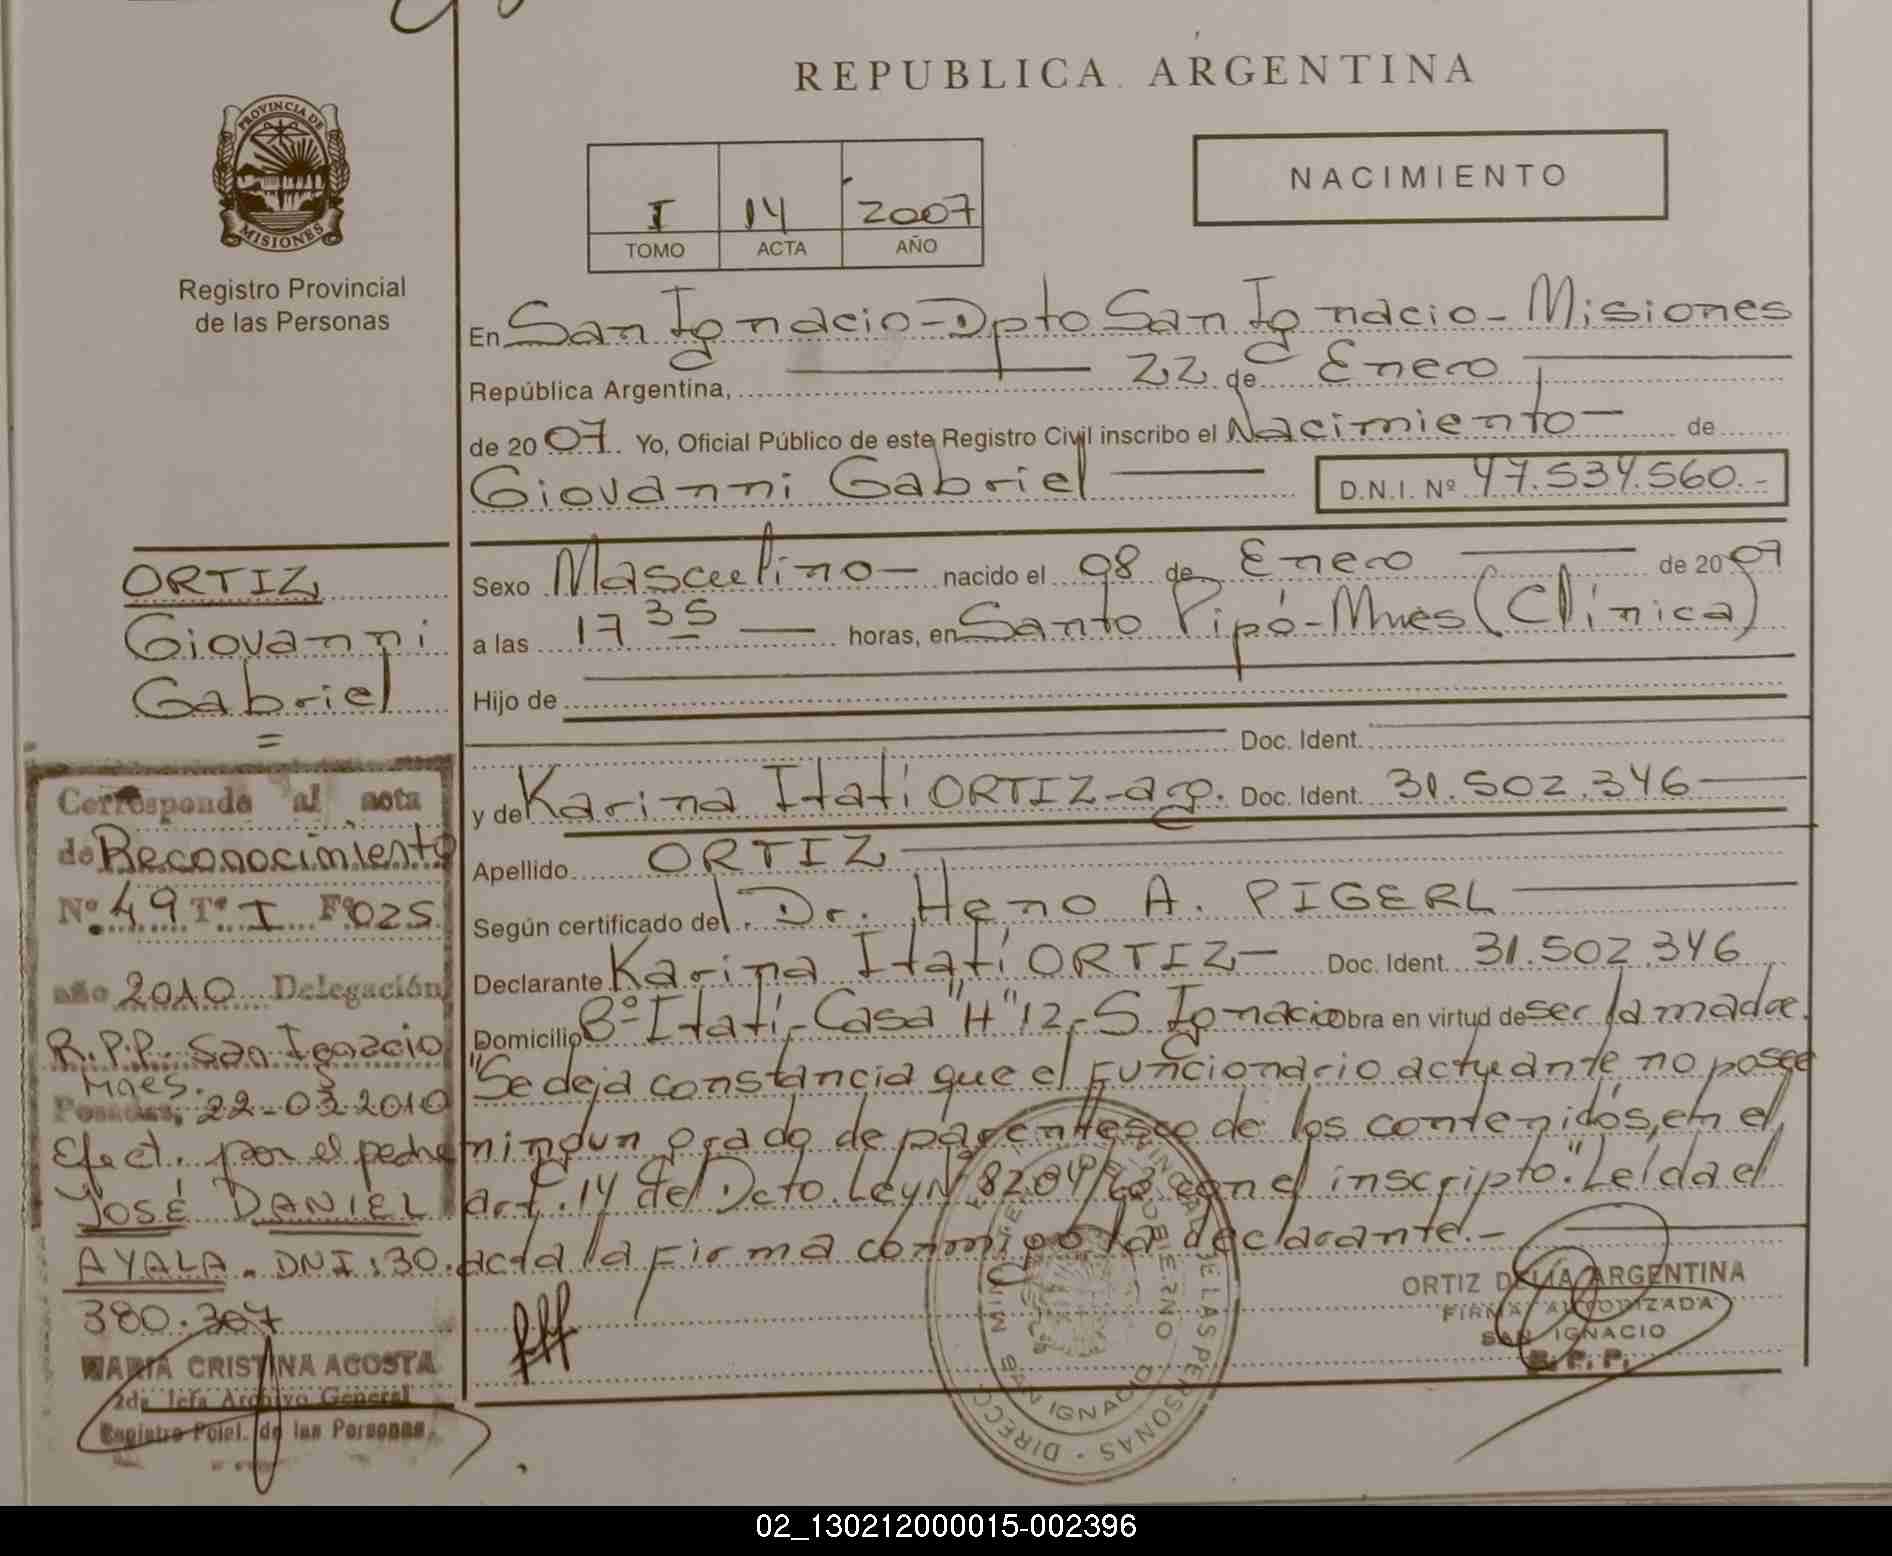 REPUBLICA ARGENTINA
PROVINCIA DE
MISIONES
Registro Provincial
de las Personas
I 14 2007
TOMO ACTA AÑO
NACIMIENTO
En San Ignacio-Dpto San Ignacio-Misiones
República Argentina, 22 de Enero
de 2007. Yo, Oficial Público de este Registro Civil inscribo el Nacimiento de
Giovanni Gabriel D.N.I. Nº 47.534.560.-
Sexo Masculino- nacido el 08 de Enero de 2007
a las 17 35 horas, en Santo Pipó-Mnes (Clínica)
Hijo de
Doc. Ident.
y de Karina Itatí ORTIZ-arg. Doc. Ident. 31.502.346
Apellido ORTIZ
Según certificado del Dr. Heno A. PIGERL
Declarante Karina Itatí ORTIZ- Doc. Ident. 31.502.346
Domicilio Bº Itatí-Casa "H" 12-S Ignacio Obra en virtud de ser la madre.
"Se deja constancia que el funcionario actuante no posee
ningun grado de parentesco de los contenidos, en el
art. 14 del Dcto. Ley Nº 8204/63 con el inscripto." Leída el
acta la firma conmigo la declarante.-
ORTIZ DELIA ARGENTINA
FIRMA AUTORIZADA
SAN IGNACIO
R. P. P.
ORTIZ
Giovanni
Gabriel
=
Corresponde al nota
de Reconocimiento
Nº 49 Tº I Fº 025
año 2010 Delegación
R.P.P. San Ignacio
Mnes.
Posadas, 22-03-2010
Efect. por el padre
JOSÉ DANIEL
AYALA. DNI: 30.
380.307
MARIA CRISTINA ACOSTA
2da Jefa Archivo General
Registro Pciel. de las Personas
SAN IGNACIO
02_130212000015-002396